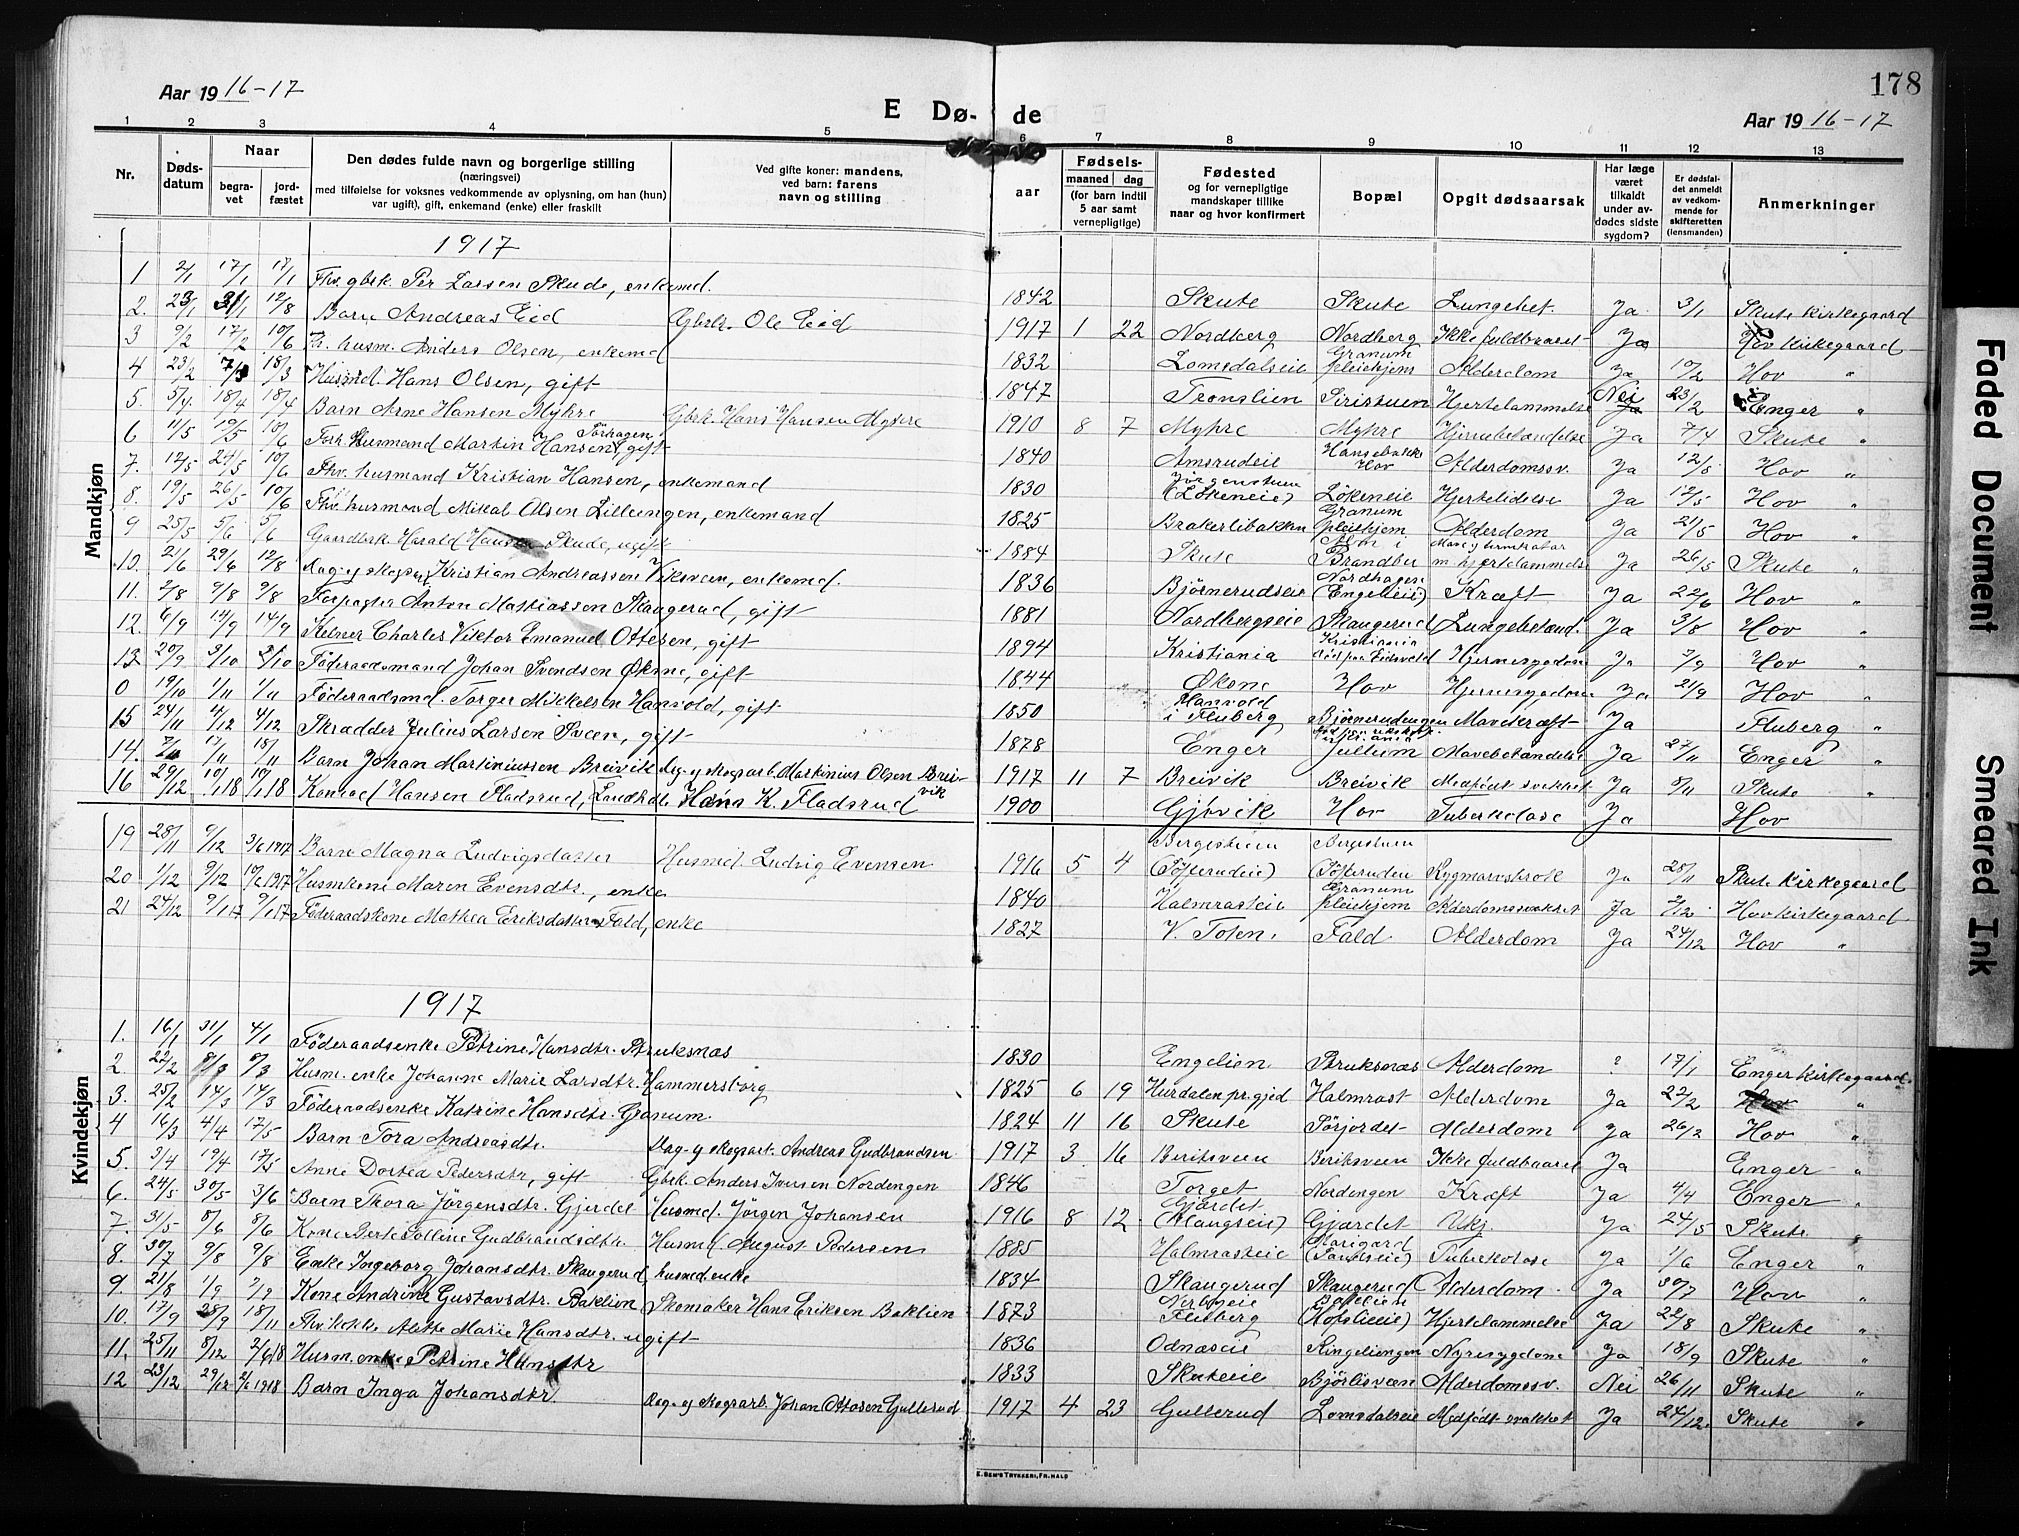 178
Aar 19 16-17
E Dø-
de
Aar 19 16-17
1 2 3 4 5 6 7 8 9 10 11 12 13
Nr.
Døds-
datum
Naar
begra-
vet
jord-
fæstet
Den dødes fulde navn og borgerlige stilling
(næringsvei)
med tilføielse for voksnes vedkommende av oplysning, om han (hun)
var ugift), gift, enkemand (enke) eller fraskilt
Ved gifte koner: mandens,
ved barn: farens
navn og stilling
aar
Fødsels-
maaned dag
(for barn indtil
5 aar samt
vernepligtige)
Fødested
og for vernepligtige
mandskaper tillike
naar og hvor konfirmert
Bopæl
Opgit dødsaarsak
Har læge
været
tilkaldt
under av-
dødes sidste
sygdom?
Er dødsfal-
det anmeldt
av vedkom-
mende for
skifteretten
(lensmanden)
Anmerkninger
Mandkjøn
1917
1 2/1 17/1 17/1 Fhv. gbrk. Per Larsen Skude, enkemd. 1842 Skute Skute Lungebet. Ja 3/1 Skute kirkegaard
2. 23/1 31/1 12/8 Barn Andreas Eid Gbrk. Ole Eid 1917 1 22 Nordberg Nordberg Ikke fuldbaaret Ja Hov kirkegaard
3 9/2 17/2 10/6 Fh. husm. Anders Olsen, enkemd 1832 Lomsdalseie Granum pleiehjem Alderdom Ja 10/2 Hov "
4 23/2 7/3 18/3 Husmd. Hans Olsen, gift 1847 Tronslien Siristuen Hjertelammelse Nei 23/2 Enger "
5. 5/4 18/4 18/4 Barn Arne Hansen Myhre Gbrk. Hans Hansen Myhre 1910 8 7 Myhre Myhre Hjernebetændelse Ja 7/4 Skute "
6 11/5 19/5 10/6 Forh. Husmand Martin Hansen, gift 1840 Amsrudeie Hansebakk. Hov Alderdomssv. Ja 12/5 Hov "
7. 12/5 24/5 10/6 Fhv. husmand Kristian Hansen, enkemand 1830 Jörgenstuen (Lökeneie) Lökeneie Hjertelidelse Ja 12/5 Hov "
8. 19/5 26/5 10/6 Fhv. husmand Mikal Olsen Lilleengen, enkemand 1825 Brakerlibakken Granum pleiehjem Alderdom Ja 21/5 Hov "
9 25/5 5/6 5/6 Gaardbrk Harald Hansen Skude, ugift 1884 Skute Brandbu m hjertelammelse Ja 26/5 Skute "
10. 21/6 29/6 12/8 Dag- og skogsarb. Kristian Andreassen Viksveen, enkemd. 1836 Björnerudseie Nordhagen (Engelieie) Kræft Ja 22/6 Hov "
11. 2/8 9/8 9/8 Forpagter Anton Mathiassen Skaugerud, gift 1881 Nordbergseie Skaugerud Lungebetænd. Ja 3/8 Hov "
12. 6/9 14/9 14/9 Kelner Charles Viktor Emanuel Ottesen, gift 1894 Kristiania Kristiania Hjernesygdom Ja 7/9 Hov "
13 20/9 3/10 3/10 Föderaadsmand Johan Svendsen Øksne, gift 1844 Øksne Hov Hjernesygdom Ja 21/9 Hov "
0 19/10 1/11 1/11 Föderaadsmd. Torger Mikkelsen Hanvold, gift 1850 Hanvold i Fluberg Björnerudengen Mavekræft Ja Fluberg "
15 24/11 4/12 4/12 Skrædder Julius Larsen Sveen, gift 1878 Enger Mavebetændelse Ja 27/11 Enger "
14. 17/11 18/11 Barn Johan Martiniussen Breivik Dag- og skogsarb. Martinius Olsen Breivik 1917 11 7 Breivik Breivik Medfödt svakhet Ja 8/11 Skute "
16 29/12 10/1 18 10/1 18 Konrad Hansen Fladsrud, Landh. Hans K. Fladsrud 1900 Gjövik Hov Tuberkolose Ja Hov
19 28/11 9/12 3/6 1917 Barn Magna Ludvigsdatter Husmd. Ludvig Evensen 1916 5 4 Bergestuen (Töfterudeie) Bergestuen (Töfterudeie) Rygmarvsbrok Ja 28/11 Skute Kirkegaard
20 1/12 9/12 10/6 1917 Husmkone Maren Evensdtr., enke 1840 Halmrasteie Granum pleiehjem Alderdomssvakhet Ja 2/12 Hov kirkegaard
21 24/12 9/1 17 9/1 17 Föderaadskone Mathea Eriksdatter Fald, enke 1827 V. Toten. Fald Alderdom Ja 24/12 Hov "
Kvindekjøn
1917
1. 16/1 31/1 4/1 Föderaadsenke Petrine Hansdtr. Struksnæs 1830 Engelien Struksnæs Alderdom ? 17/1 Enger kirkegaard
2. 22/2 8/3 8/3 Husm. enke Johanne Marie Larsdtr. Hammersborg 1825 6 19 Hurdalen pr.gjed Halmrast Alderdom Ja 22/2 Hov "
3. 25/2 14/3 14/3 Föderaadsenke Katrine Hansdtr. Granum. 1824 11 16 Skute Sörjordet Alderdom Ja 26/2 Hov "
4 16/3 4/4 17/5 Barn Tora Andreasdtr. Dag- og skogsarb. Andreas Gudbrandsen 1917 3 16 Beriksveen Beriksveen Ikke fuldbaaret Ja Enger "
5. 3/4 19/4 17/5 Anne Dortea Pedersdtr, gift Gbrk. Anders Iversen Nordengen 1846 Torget Nordengen Kræft Ja 4/4 Enger "
6. 24/5 30/5 3/6 Barn Thora Jörgensdtr. Gjerdet Husmd. Jörgen Johansen 1916 8 12 Gjærdet (Haugseie) Gjærdet Ukj. Ja 24/5 Skute "
7. 31/5 8/6 8/6 Kone Berte Golline Gudbrandsdtr. Husmd. August Pedersen 1885 Halmrasteie Tuberkolose Ja 1/6 Enger "
8. 30/7 9/8 9/8 Enke Ingeborg Johansdtr. Skaugerud, husmd.enke 1834 Skaugerud Skaugerud Alderdom Ja 30/7 Hov "
9. 21/8 1/9 1/9 Kone Andrine Gustavsdtr. Baklien Skomaker Hans Eriksen Baklien 1873 Fluberg Baklien (Hofslieie) Hjertelammelse Ja 22/8 Skute "
10. 17/9 28/9 18/11 Fhv. kokke Alette Marie Hansdtr. ugift 1836 Odnæseie Ringeliengen Nyresygdom Ja 18/9 Skute "
11. 25/11 8/12 2/6 18 Husm. enke Petrine Hansdtr 1833 Skuteeie Björlisveen Alderdomssv. Nei 26/11 Skute "
12 23/12 29/12 2/6 1918 Barn Inga Johansdtr. Dag- og skogsarb. Johan Ottosen Gullerud 1917 4 23 Gullerud Lomsdalseie Medfödt svakhet Ja 24/12. Skute "
E. SEM'S TRYKKERI, FR.HALD
Faded Document
Smeared Ink